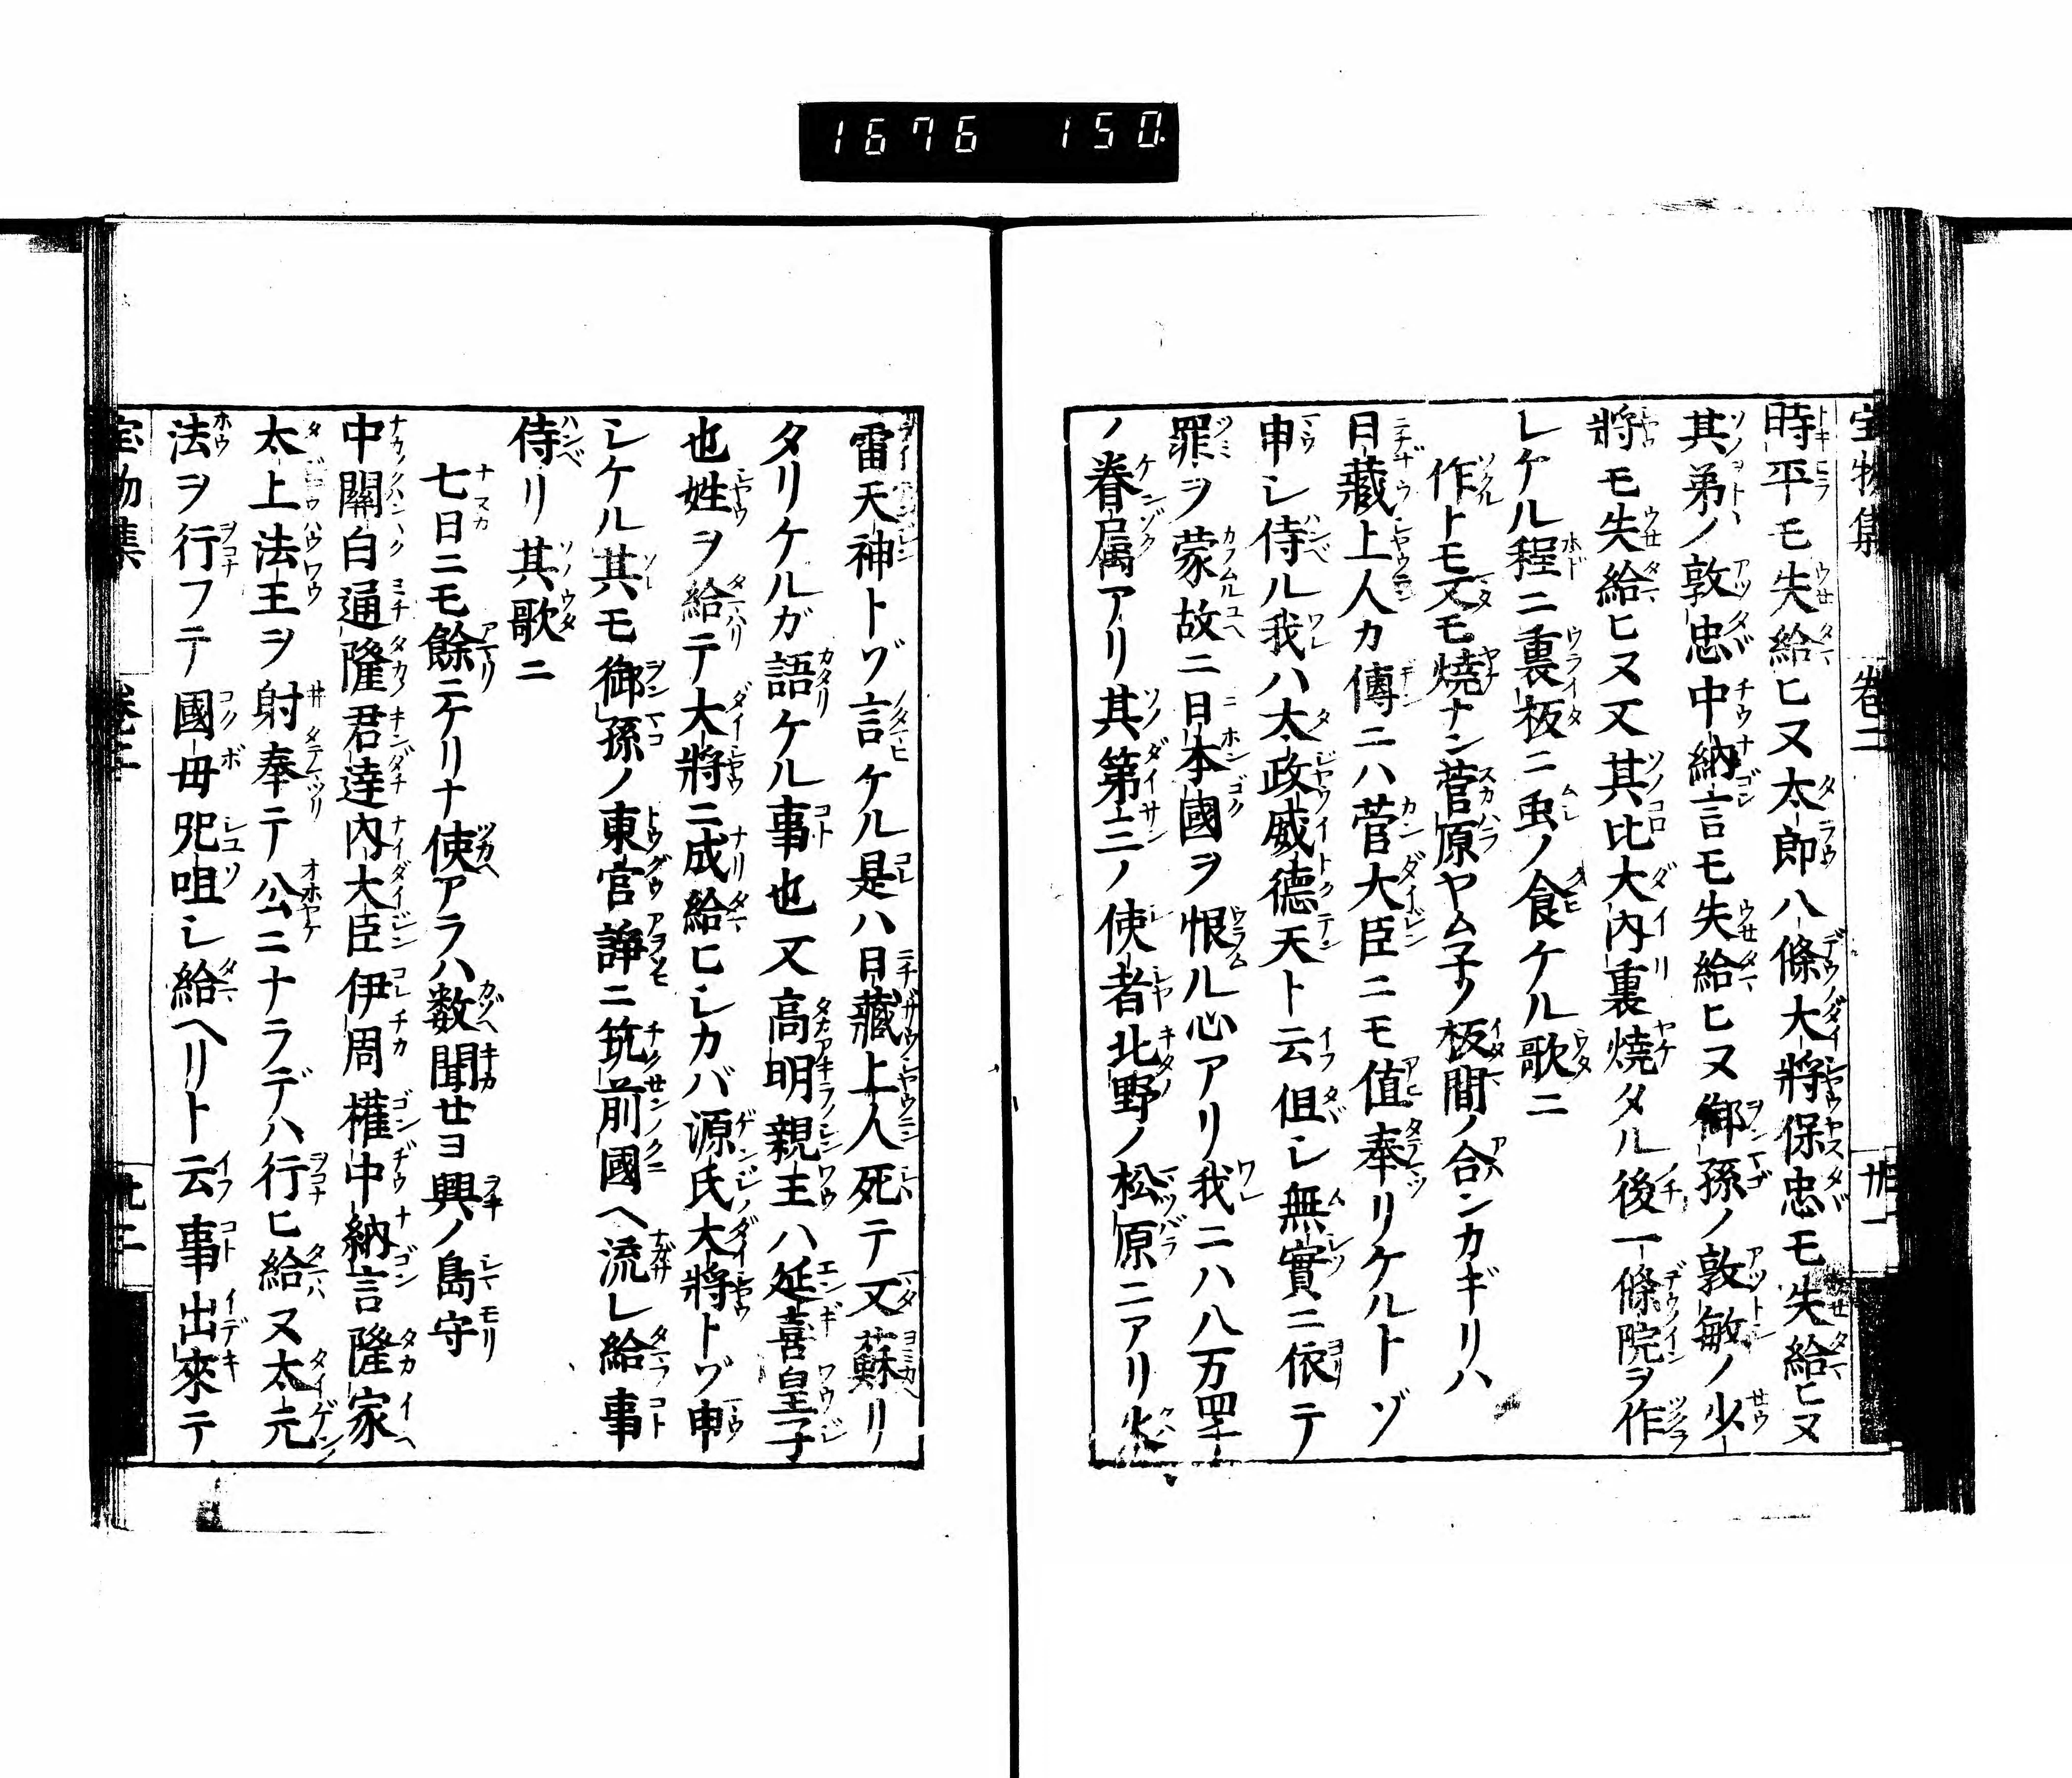 1676 150
宝物集 卷二 廿一
時平モ失給ヒヌ太郎八條大將保忠モ失給ヒヌ
其弟ノ敦忠中納言モ失給ヒヌ御孫ノ敦敏ノ少
將モ失給ヒヌ又其比大內裏燒タル後一條院ヲ作
レケル程ニ裏板ニ虫ノ食ケル歌ニ
作トモ又モ燒ナン菅原ヤム子ノ板間ノ合ンカギリハ
日藏上人カ傳ニハ菅大臣ニモ值奉リケルトゾ
申シ侍ル我ハ太政威德天ト云伹シ無實ニ依テ
罪ヲ蒙故ニ日本國ヲ恨ル心アリ我ニハ八万四千
ノ眷属アリ其第三ノ使者北野ノ松原ニアリ火
雷天神トゾ言ケル是ハ日藏上人死テ又蘇リ
タリケルガ語ケル事也又高明親王ハ延喜皇子
也姓ヲ給テ大將ニ成給ヒシカバ源氏大將トゾ申
シケル其モ御孫ノ東宮諍ニ筑前國ヘ流シ給事
侍リ其歌ニ
七日ニモ餘ニケリナ使アラハ数聞せヨ興ノ島守
中關白通隆君達內大臣伊周權中納言隆家
太上法王ヲ射奉テ公ニナラデハ行ヒ給ヌ太元
法ヲ行フテ國母咒咀シ給ヘリト云事出來テ
宝物集 卷二 廿二